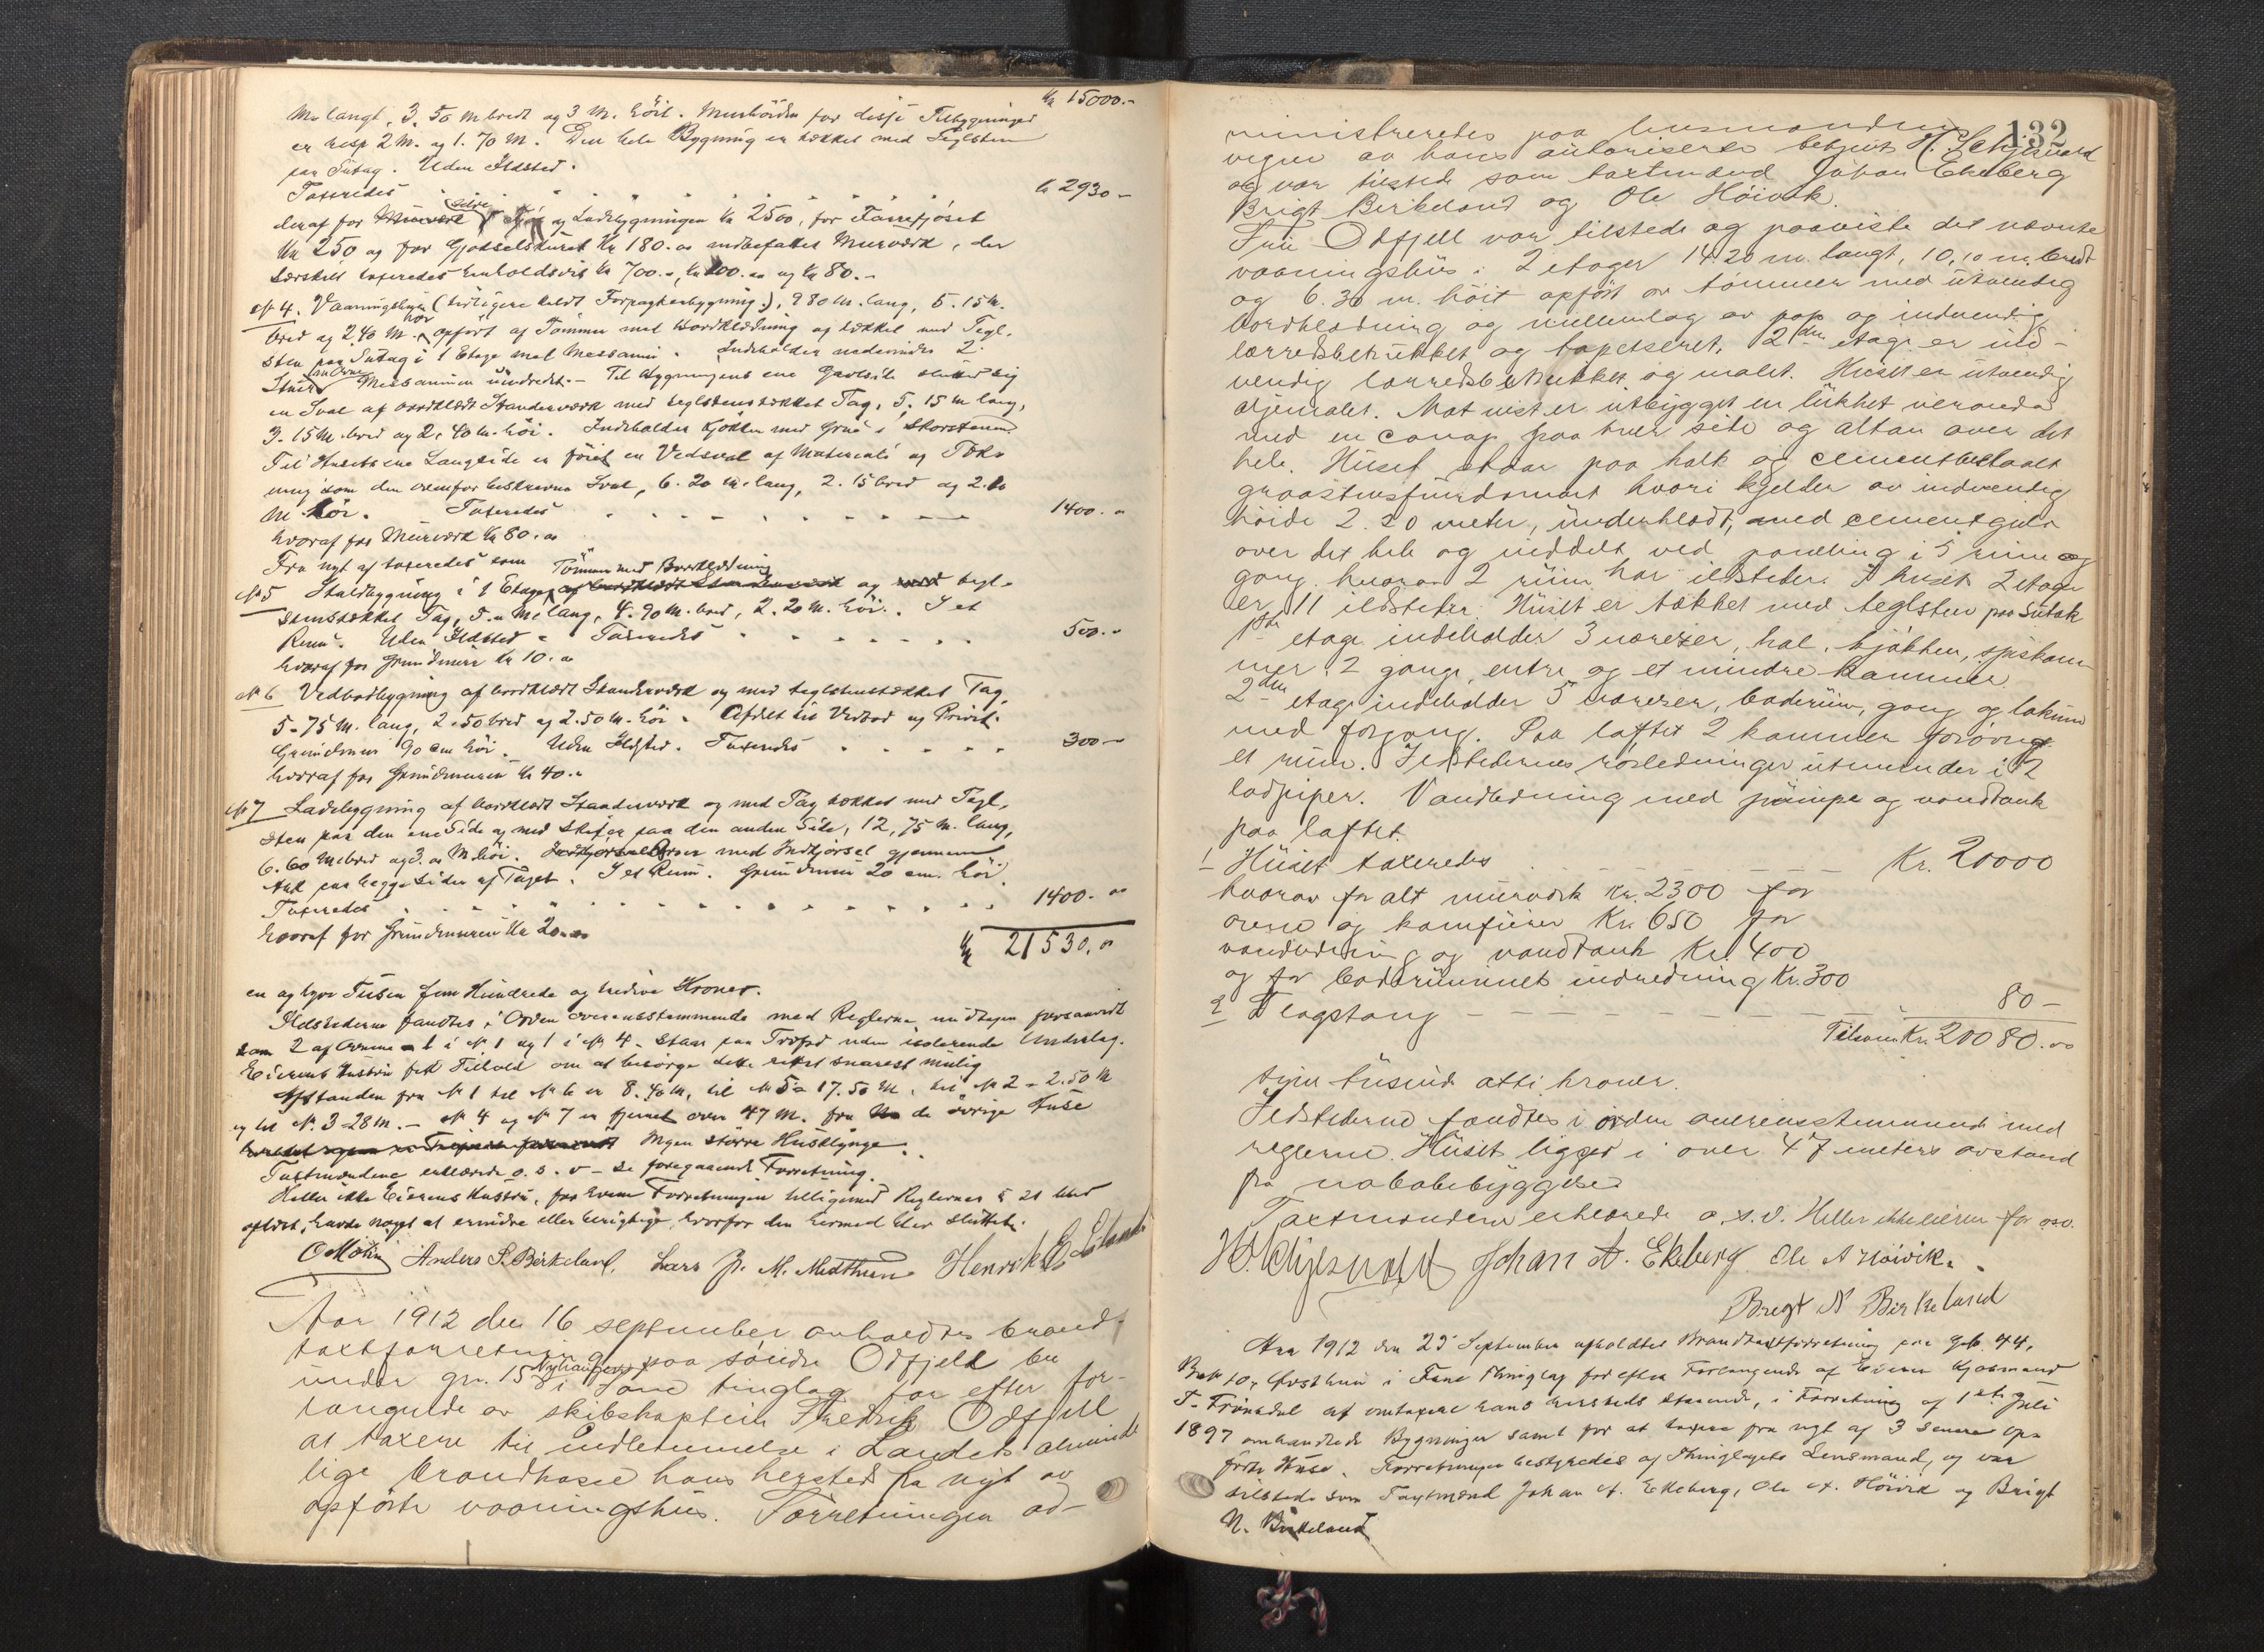 Kr 15000.-
M. langt, 3.50 m bredt og 3 M. höit. Murhöiden for disse Tilbygninger
er resp 2 M. og 1.70 M. Den hele Bygning er tækket med Teglsten
paa Sutag. Uden Ildsted.
Taxeredes " " " " " " " kr 2930-
deraf for og Ladebygningen Kr 2500, for Faarefjöset
Kr 250 og for Gjødselskuret Kr 180.00 indbefattet Murværk, der
særskilt taxeredes henholdsvis Kr 700.-, Kr 100.00 og Kr 80.-
No 4. Vaaningshus (tidligere kaldt Forpagterbygning), 9 80 M. lang, 5.15 M.
bred og 2.40 M. höi opført af Tømmer med Bordklædning og tækket med Tegl-
sten paa Sutag i 1 Etage med Messanin. Indeholder nedenunder 2
Stuer Messaninen uindredt.- Til Bygningens ene Gavlside slutter sig
en Sval af bordklædt Standerværk med teglstenstækket Tag, 5,15 M lang,
3.15 M. bred og 2,40 M. höi. Indeholder Kjøkken med Grue i Skorstenen.
Til Husets ene Langside er föiet en Vedsval af Materiale og Tæk-
ning som den ovenfor beskrevne Sval, 6.20 M. lang, 2.15 bred og 2.10
M höi. Taxeredes 1400.00
hvoraf for Murværk Kr 80.00
Fra nyt af taxeredes som
Tömmer med Bordklædning
No 5 Staldbygning i 1 Etage af bordklædt Standerværk og med tegl-
stenstækket Tag, 5.00 M. lang, 4.90 M. bred, 2.20 M. höi. I et
Rum. Uden Ildsted. Taxeredes 500.00
hvoraf for Grundmur Kr 10.00
No 6 Vedbodbygning af bordklædt Standerværk og med teglstenstækket Tag,
5.75 M. lang, 2.50 bred og 2.50 M. höi. Afdelt til Vedbod og Privet.
Grundmur 90 cm höi. Uden Ildsted. Taxeredes 300-
hvoraf for Grundmuren Kr 40.00
No 7 Ladebygning af bordklædt Standerværk og med Tag tækket med Tegl-
sten paa den ene Side og med Skifer paa den anden Side, 12,75 M. lang,
6.60 M. bred og 3.00 M. höi. med Indkjørsel gjennem
Ark paa begge Sider af Taget. I et Rum. Grundmur 20 cm. höi.
Taxeredes 1400.00
hvoraf for Grundmuren Kr 20.00
Kr 21530.00
en og tyve Tusen fem Hundrede og tredive Kroner.
Ildstederne fandtes i Orden overensstemmende med Reglerne undtagen forsaavidt
som 2 af Ovnene 1 i No 1 og 1 i No 4 staar paa Træfod uden isolerende Underlag.
Eierens Hustru fik Tilhold om at besörge dette rettet snarest mulig
Afstanden fra No 1 til No 6 er 8.40 M, til No 5 17.50 M, til No 2 - 2.50 M
og til No. 3 28 M. - No 4 og No 7 er fjernet over 47 M. fra de övrige Huse
Ingen större Husklynge.
Taxtmændene erklærede o. s. v - se foregaaende Forretning.
Heller ikke Eierens Hustru, for hvem Forretningen tilligemed Reglernes § 21 blev
oplæst, havde noget at erindre eller berigtige, hvorfor den hermed blev sluttet.
Anders P. Birkeland, Lars P. M. Midthun Henrik
Aar 1912 den 16 september avholdtes brand-
taxtforretning paa söndre Odfjeld bn
under gn. 15 i Fane tinglag for efter for-
langende av skibskaptein Fredrik Odfjell
at taxere til indlemmelse i Landets alminde
lige Brandkasse hans hersteds fra nyt av
opførte vaaningshus. Forretningen ad-
132
ministreredes paa lensmandens
vegne av hans autoriserte betjent H. Schjelderup
og var tilstede som taxtmænd Johan Ekeberg
Brigt Birkeland og Ole Höivik.
Fru Odfjell var tilstede og paaviste det nævnte
vaaningshus i 2 etager 14.20 m. langt, 10,10 m. bredt
og 6.30 m. höit opført av tömmer med utvendig
bordklædning og mellemlag av pap og indvendig
lærredsbetrukket og tapetseret. 2den etage er ind-
vendig lærredsbetrukket og malet. Huset er utvendig
oljemalet. Mot vest er utbygget en lukket veranda
med en carnap paa hver side og altan over det
hele. Huset staar paa kalk og cementbetaalt
graastensfundament hvori kjelder av indvendig
höide 2.20 meter, underklædt, med cementgulv
over det hele og inddelt ved paneling i 5 rum og
gang. hvorav 2 rum har ildsteder. I husets 2 etager
er 11 ildsteder. Huset er tækket med teglsten paa sutak
1ste etage indeholder 3 værelser, hal, kjøkken, spiskam-
mer, 2 gange, entre og et mindre kammer.
2den etage indeholder 5 værelser, baderum, gang og lokum
med forgang. Paa loftet 2 kammer forövrig
et rum. Ildstedernes rörledninger utmunder i 2
ladpiper. Vandledning med pumpe og vandtank
paa loftet.
1 Huset taxeredes - - - - - Kr. 20000
hvorav for alt murværk Kr. 2300 for
ovne og komfurer Kr. 650 for
vandledning og vandtank Kr. 400
og for baderummets indredning Kr. 300
2 Flagstang - - - - - 80-
Tilsam Kr. 20080.00
tyve tusind otti kroner.
Ildstederne fandtes i orden overensstemmende med
reglerne. Huset ligger i over 47 meters avstand
fra nabobebyggelse
Taxtmændene erklærede o. s. v. Heller ikke eieren for osv.
Johan A. Ekeberg Ole A Höivik.
Brigt N Birkeland
Aar 1912 den 25 September afholdtes Brandtaxtforretning paa Gab. 44,
Brn 10, Øvsthun i Fane Thinglag for efter Forlangende af Eieren Kjøbmand
T. Frönsdal at omtaxere hans hersteds staaende, i Forretning af 1ste Juli
1897 omhandlede Bygninger samt for at taxere fra nyt af 3 senere op-
førte Huse. Forretningen bestyredes af Thinglagets Lensmand, og var
tilstede som Taxtmænd Johan A. Ekeberg, Ole A. Höivik og Brigt
N. Birkeland